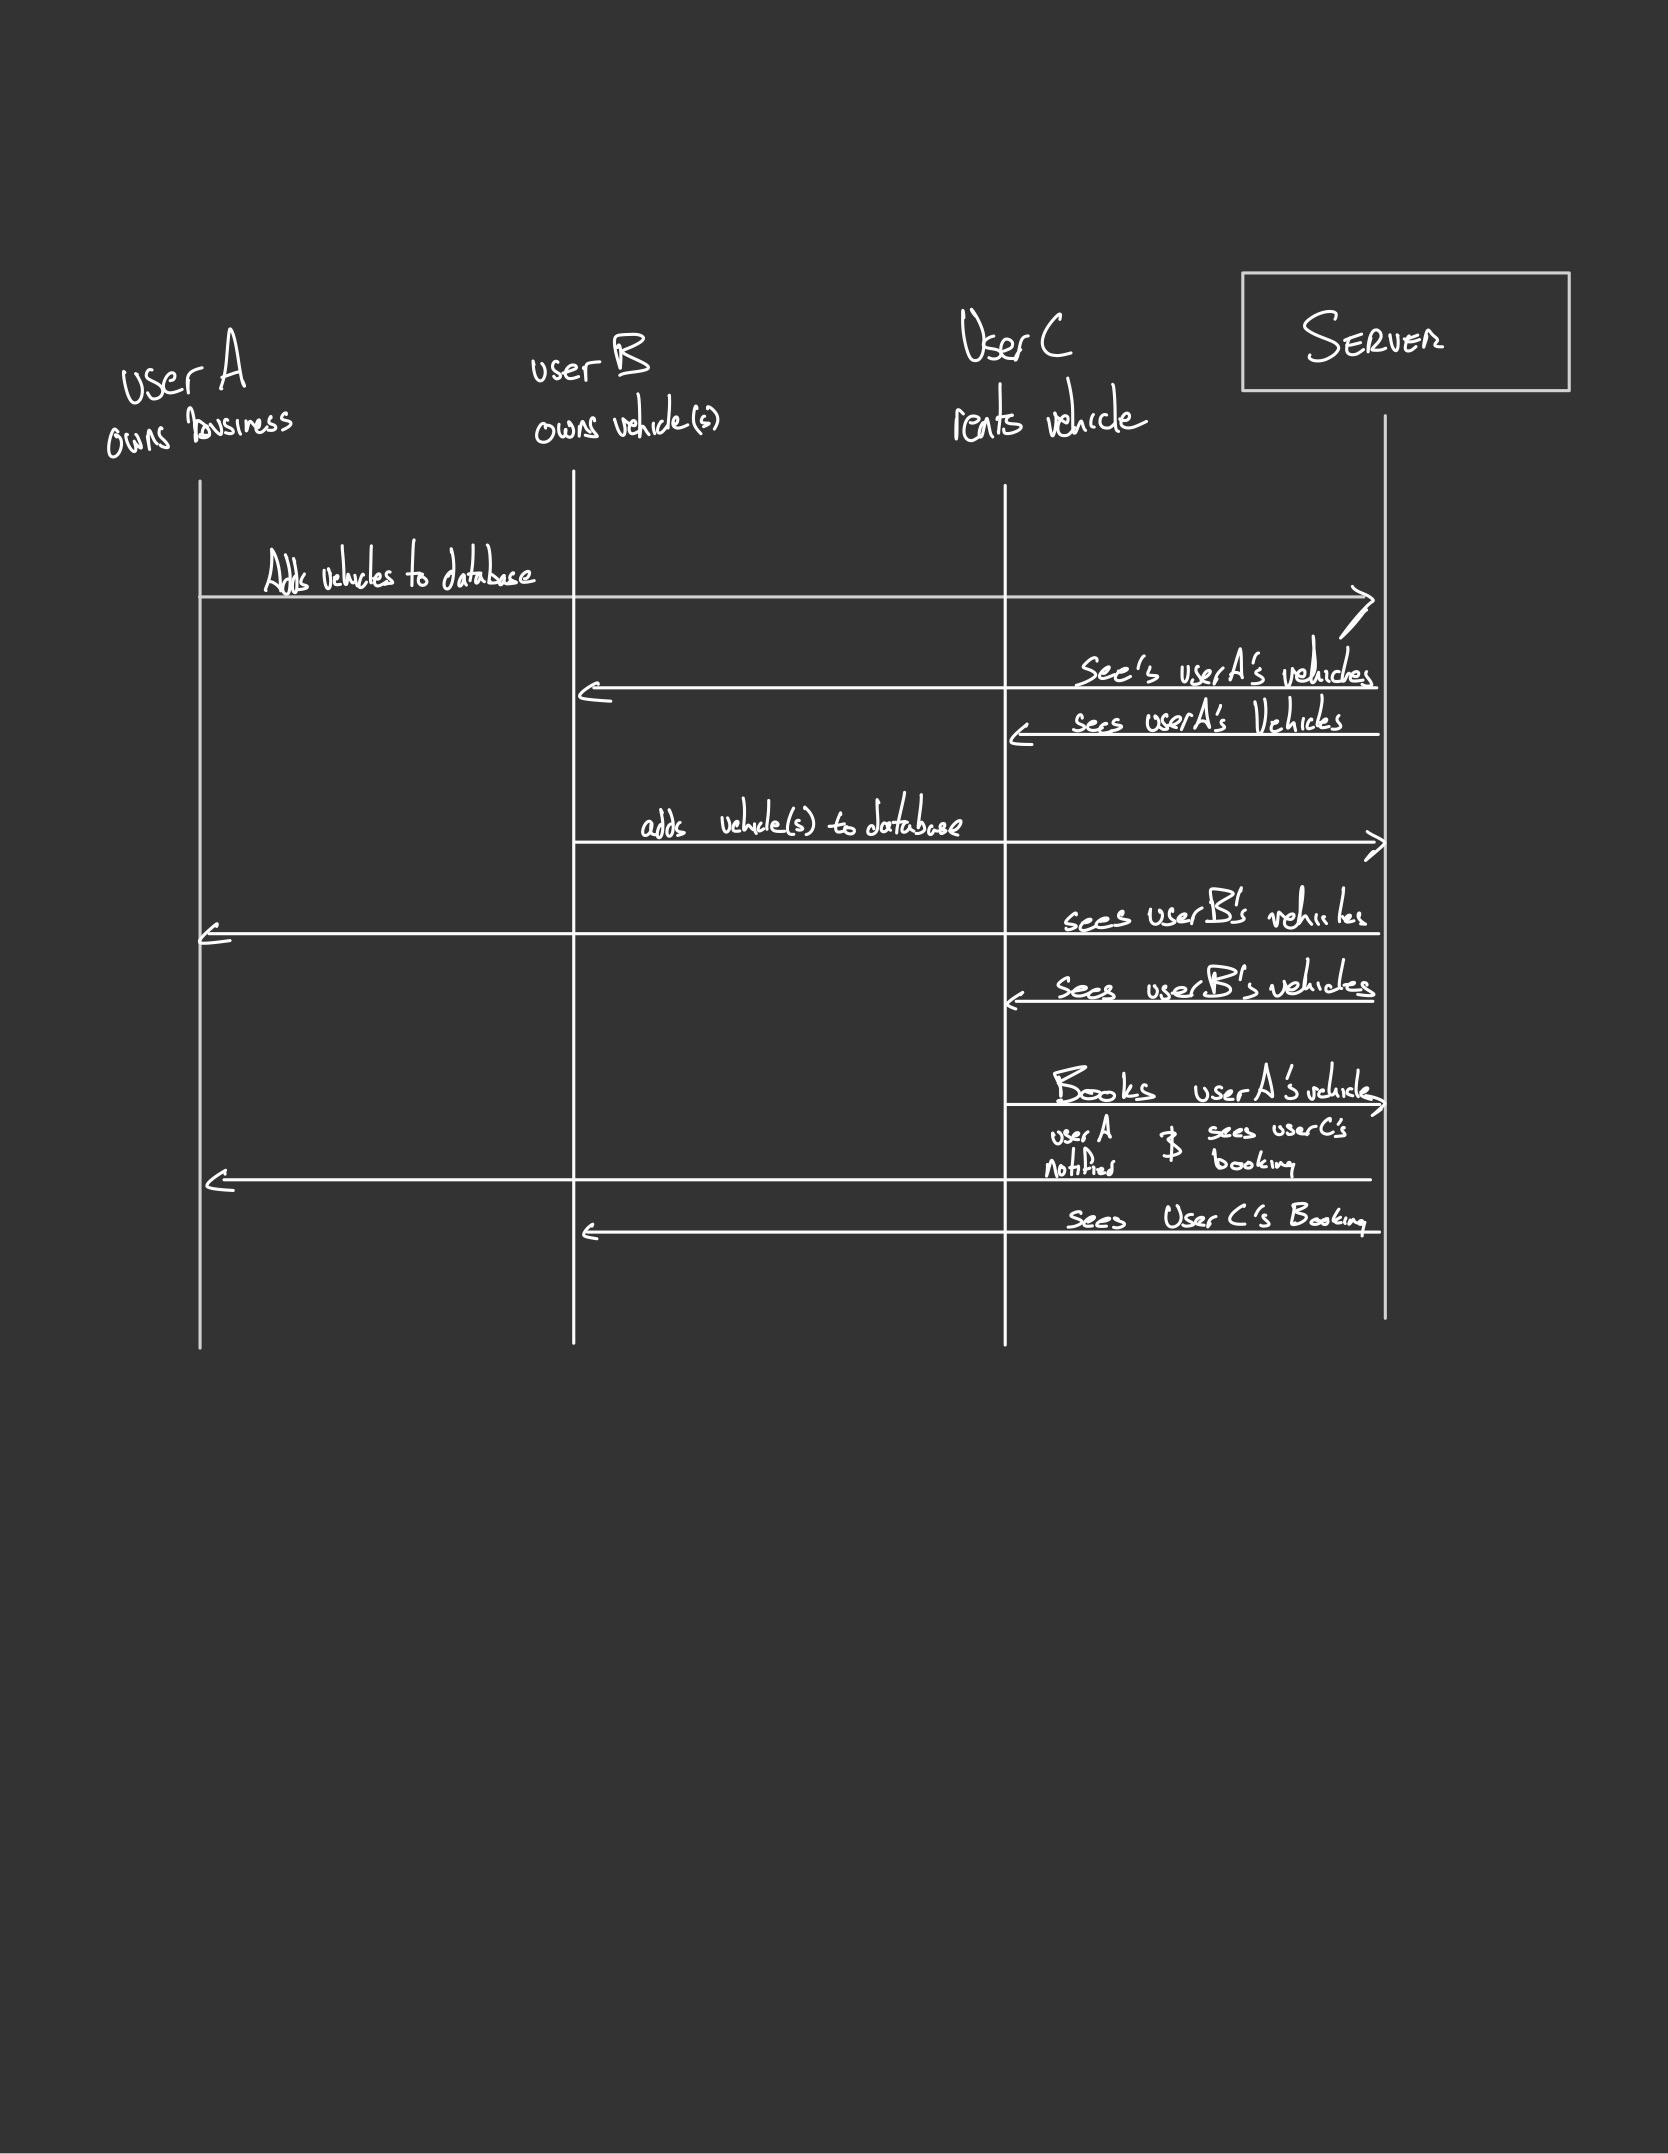 user A
owns business
user B
owns vehicle(s)
User C
rents vehicle
SERVER
Adds vehicles to database
See's userA's vehicles
sees userA's Vehicles
adds vehicle(s) to database
sees userB's vehicles
sees userB's vehicles
Books userA's vehicle
user A notified $ sees userC's booking
sees User C's Booking